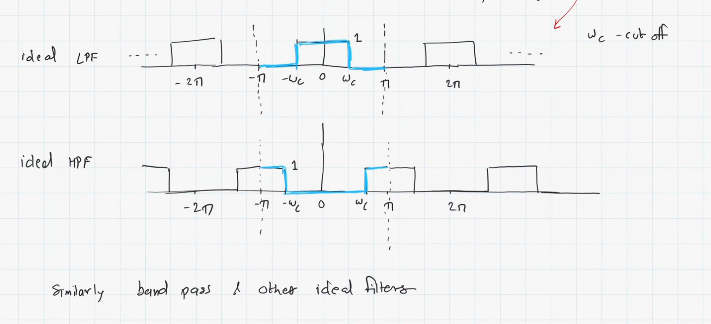 ω_c - cut off
ideal LPF
1
-2π -π -ω_c 0 ω_c π 2π
ideal HPF
1
-2π -π -ω_c 0 ω_c π 2π
Similarly band pass & other ideal filters